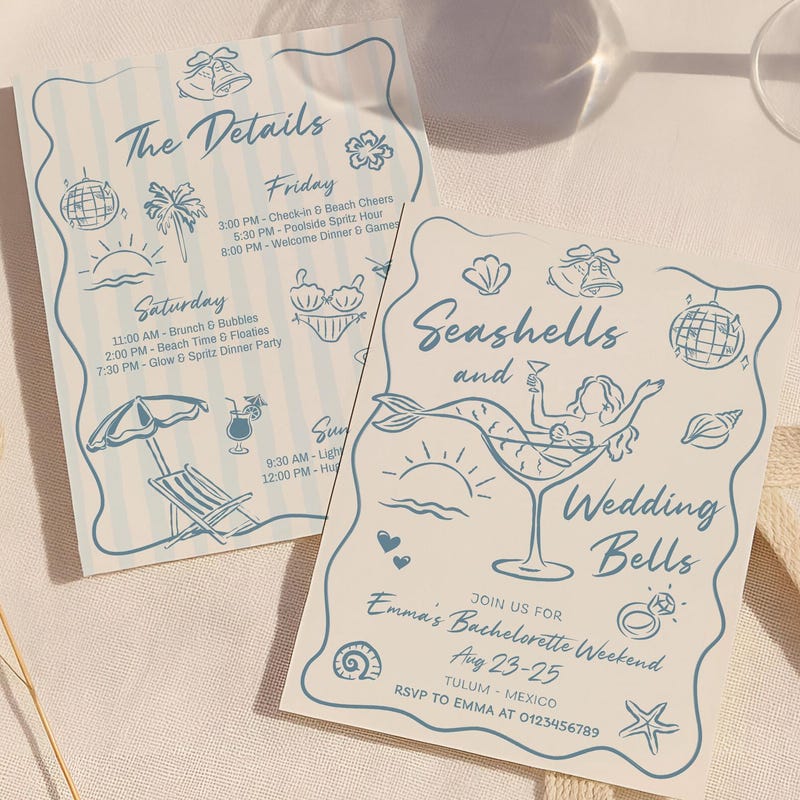 The Details
Friday
3:00 PM - Check-in & Beach Cheers
5:30 PM - Poolside Spritz Hour
8:00 PM - Welcome Dinner & Games
Saturday
11:00 AM - Brunch & Bubbles
2:00 PM - Beach Time & Floaties
7:30 PM - Glow & Spritz Dinner Party
9:30 AM -
12:00 PM -
Seashells
and
Wedding
Bells
JOIN US FOR
Emma's Bachelorette Weekend
Aug 23-25
TULUM - MEXICO
RSVP TO EMMA AT 0123456789